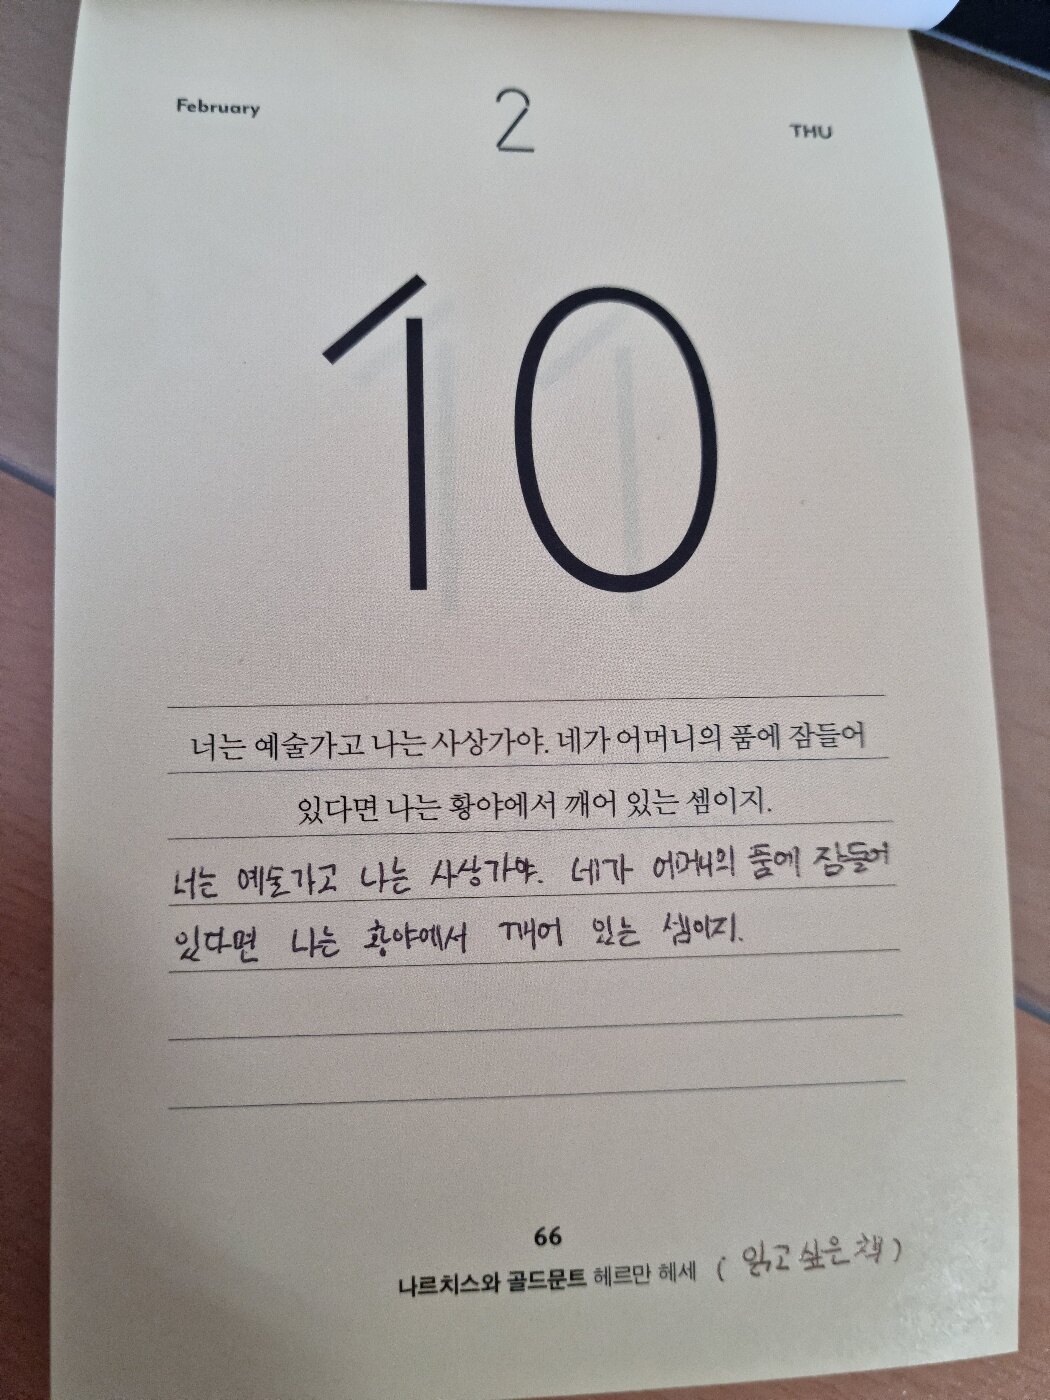 February 2 THU
10
너는 예술가고 나는 사상가야. 네가 어머니의 품에 잠들어
있다면 나는 황야에서 깨어 있는 셈이지.
너는 예술가고 나는 사상가야. 네가 어머니의 품에 잠들어
있다면 나는 황야에서 깨어 있는 셈이지.
66
나르치스와 골드문트 헤르만 헤세 ( 읽고 싶은 책 )